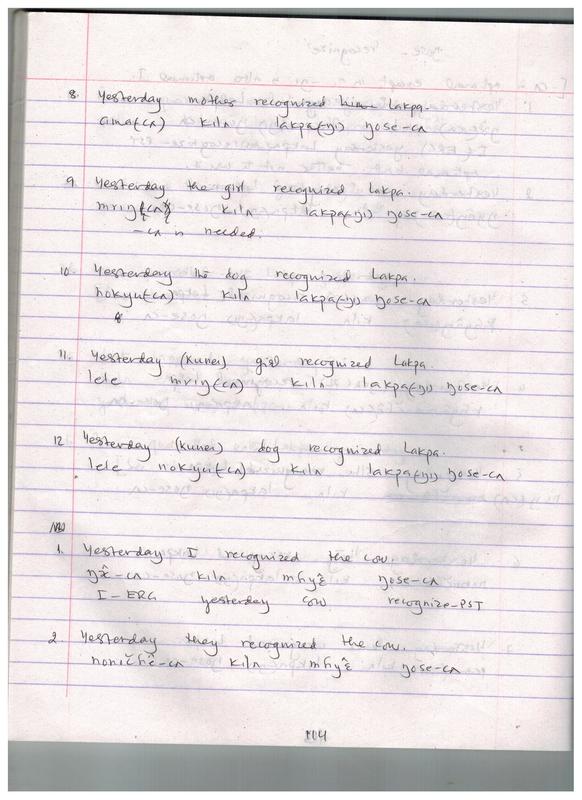 8. Yesterday mother recognized him Lakpa.
ama(-cʌ) kilʌ lakpa(-ŋi) ŋose-cʌ
9. Yesterday the girl recognized Lakpa.
mriŋ(-cʌ) kilʌ lakpa(-ŋi) ŋose-cʌ
-cʌ is needed.
10. Yesterday the dog recognized Lakpa.
nokyu(-cʌ) kilʌ lakpa(-ŋi) ŋose-cʌ
11. Yesterday (Kunei) girl recognized Lakpa.
lele mriŋ(-cʌ) kilʌ lakpa(-ŋi) ŋose-cʌ
12 Yesterday (Kunei) dog recognized Lakpa.
lele nokyu(-cʌ) kilʌ lakpa(-ŋi) ŋose-cʌ
1. Yesterday I recognized the cow.
kilʌ ŋose-cʌ
I-ERG yesterday cow recognize-PST
2. Yesterday they recognized the cow.
kilʌ ŋose-cʌ
104